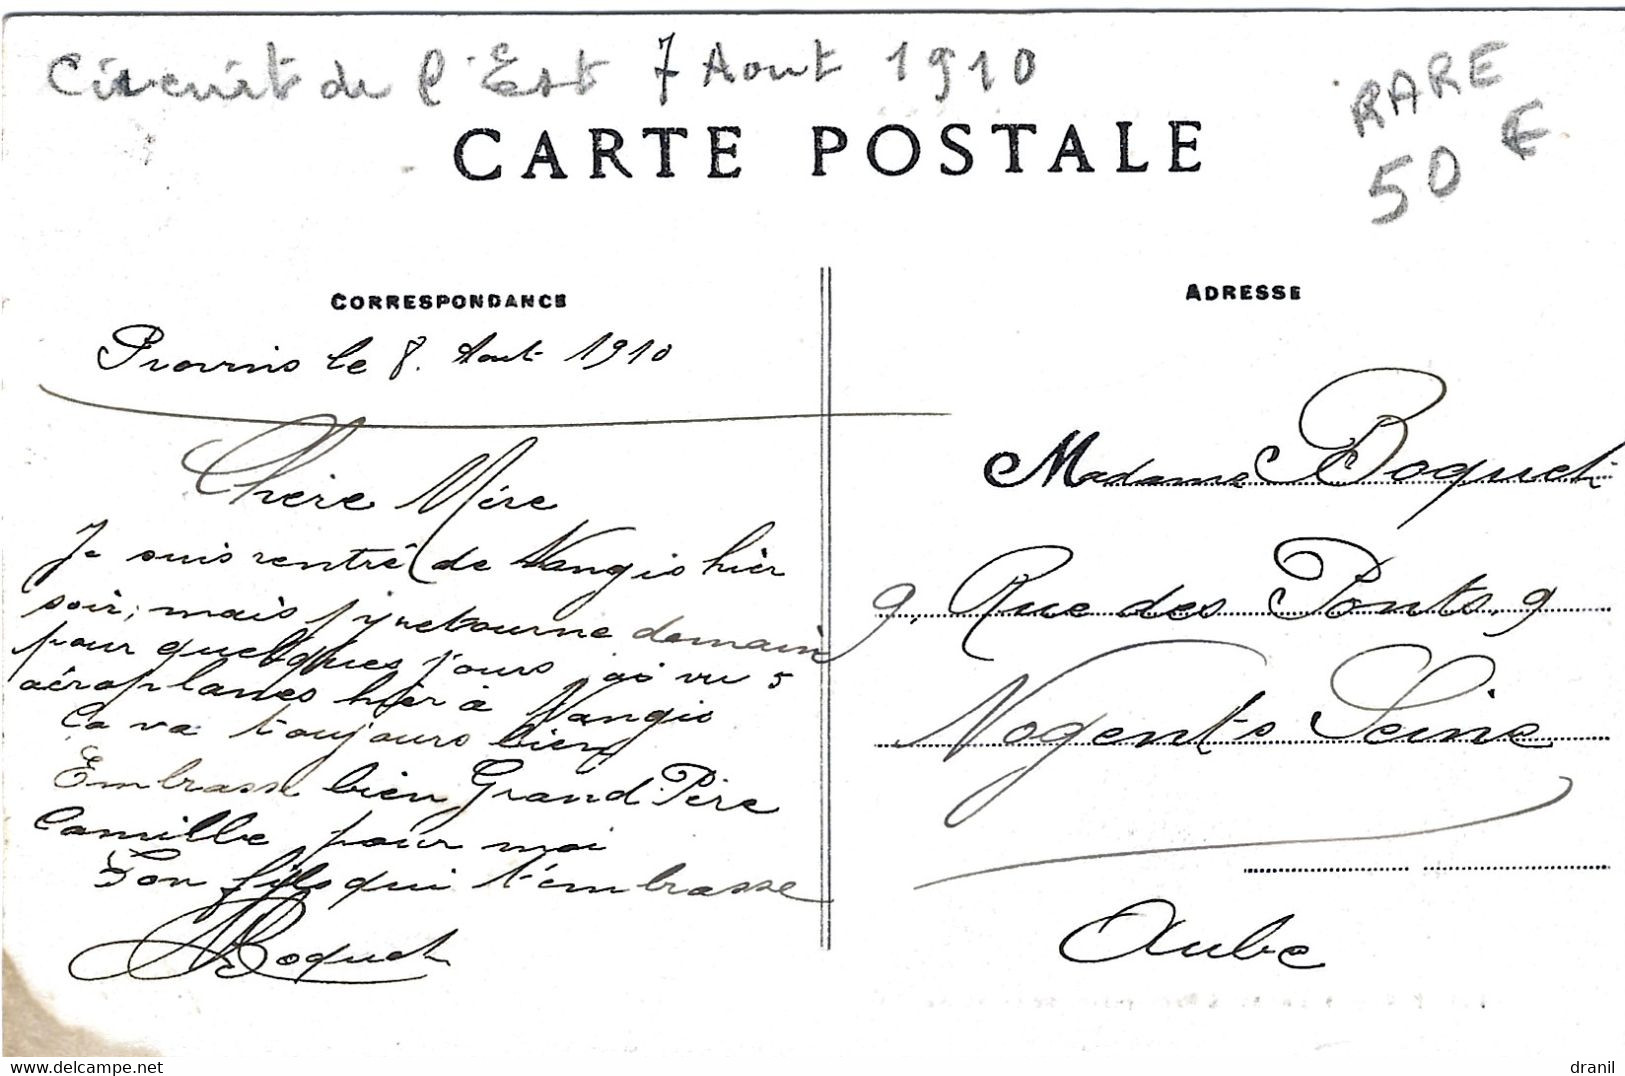 Circuit de l'Est 7 Aout 1910
RARE
50 €
CARTE POSTALE
CORRESPONDANCE
Provins le 8. Aout 1910
Chère Mère
Je suis rentré de Nangis hier
soir; mais j'y retourne demain
pour quelques jours jai vu 5
aéroplanes hièr à Nangis
Ca va toujours bien
Embrasse bien Grand Père
Camille pour moi
Ton fils qui t'embrasse
Boquet
ADRESSE
Madame Boquet
9, Rue des Ponts, 9
Nogent s Seine
Aube
www.delcampe.net
dranil